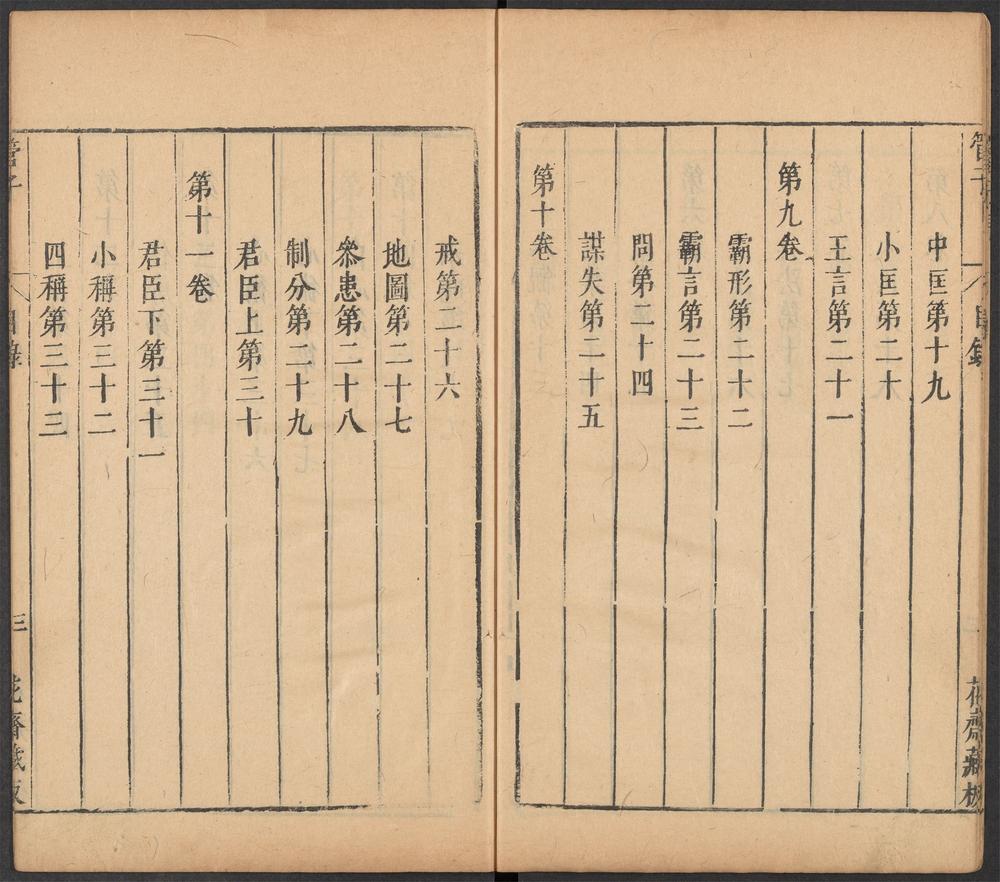 管子
目錄
花齋藏板
中匡第十九
小匡第二十
王言第二十一
第九卷
霸形第二十二
霸言第二十三
問第二十四
謀失第二十五
第十卷
戒第二十六
地圖第二十七
叅患第二十八
制分第二十九
君臣上第三十
第十一卷
君臣下第三十一
小稱第三十二
四稱第三十三
管子
目錄
三
花齋藏板